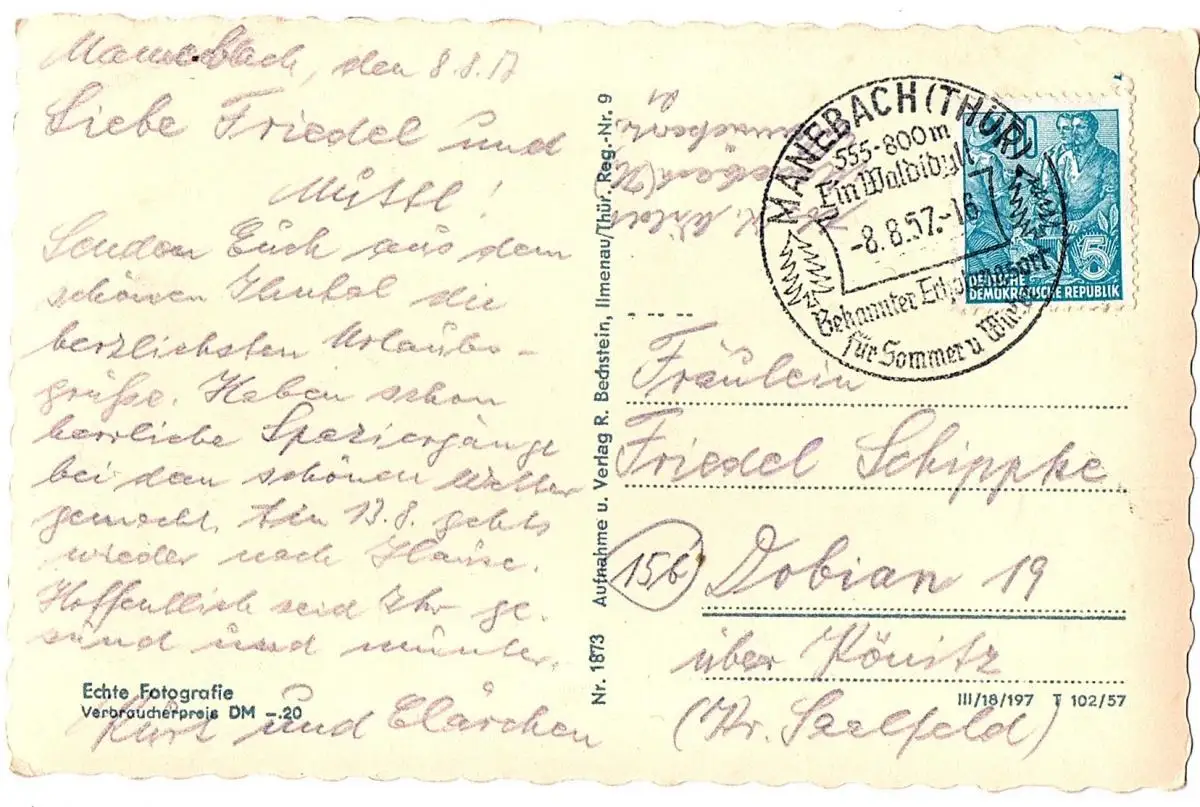 Manebach, den 8.8.57
Liebe Friedel und
Muttl!
Senden Euch aus dem
schönen Ilmtal die
herzlichsten Urlaubs-
grüße. Haben schon
herrliche Spaziergänge
bei dem schönen Wetter
gemacht. Am 13.8. gehts
wieder nach Hause.
Hoffentlich seid Ihr ge-
sund und munter.
Kurt und Clärchen
Echte Fotografie
Verbraucherpreis DM -.20
Nr. 1873 Aufnahme u. Verlag R. Bechstein, Ilmenau/Thür. Reg.-Nr. 9
MANEBACH (THÜR)
555-800m
Ein Waldidyll
-8.8.57.-16
Bekannter Erholungsort
für Sommer u Winter
5
DEUTSCHE
DEMOKRATISCHE REPUBLIK
Fräulein
Friedel Schippke
15b Dobian 19
über Könitz
(Kr. Saalfeld)
III/18/197 T 102/57